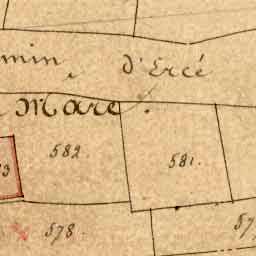 min d'Ercé
Mare.
582.
581.
578.